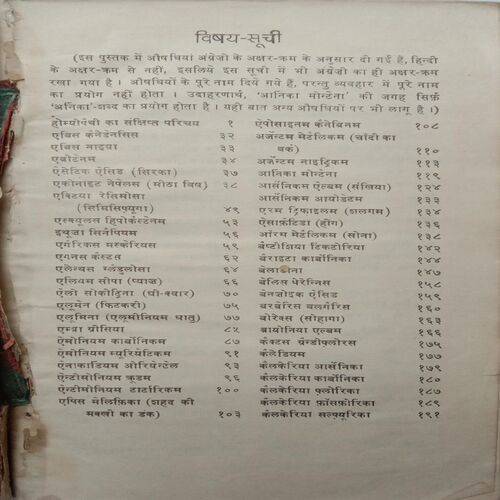 विषय-सूची
(इस पुस्तक में औषधियां अंग्रेजी के अक्षर-क्रम के अनुसार दी गई हैं, हिन्दी
के अक्षर-क्रम से नहीं, इसलिये इस सूची में भी अंग्रेजी का ही अक्षर-क्रम
रखा गया है । औषधियों के पूरे नाम दिये गये हैं, परन्तु व्यवहार में पूरे नाम
का प्रयोग नहीं होता । उदाहरणार्थ, 'आर्निका मोन्टेना' की जगह सिर्फ़
'अर्निका'-शब्द का प्रयोग होता है । यही बात अन्य औषधियों पर भी लागू है ।)
होम्योपैथी का संक्षिप्त परिचय १
एबिस कैनेडेनसिस ३२
एबिस नाइग्रा ३३
एब्रोटेनम ३४
ऐसेटिक ऐसिड (सिरका) ३७
एकोनाइट नैपेलस (मीठा विष) ३८
एक्टिया रेसिमोसा
(सिमिसिफ्यूगा) ४९
एस्क्यूलस हिपोकैस्टेनम ५३
इथूजा सिनैपियम ५६
एगैरिकस मस्केरियस ५९
एगनस कैस्टस ६२
एलेन्थस ग्लैंडुलोसा ६४
एलियम सीपा (प्याज) ६६
ऐलो सोकोट्रिना (घी-क्वार) ७०
एलूमेन (फिटकरी) ७५
एलूमिना (एलूमीनियम धातु) ७७
एम्ब्रा ग्रीसिया ८५
ऐमोनियम कार्बोनिकम ८७
ऐमोनियम म्यूरियेटिकम ९१
ऐनाकार्डियम ओरियेन्टेल ९३
ऐन्टीमोनियम क्रूडम ९६
ऐन्टीमोनियम टार्टारिकम १००
एपिस मेलिफ़िका (शहद की
मक्खी का डंक) १०३
ऐपोसाइनम कैनेबिनम १०८
अर्जेन्टम मेटैलिकम (चाँदी का
वर्क) ११०
अर्जेन्टम नाइट्रिकम ११३
आर्निका मोन्टेना ११९
आर्सेनिकम ऐल्बम (संखिया) १२४
आर्सेनिकम आयोडेटम १३३
एरम ट्रिफाइलम (शलगम) १३४
ऐसाफ़ेटिडा (हींग) १३६
ऑरम मेटैलिकम (सोना) १३८
बैप्टीशिया टिंक्टोरिया १४२
बैराइटा कार्बोनिका १४४
बेलाडोना १४७
बेलिस पेरेन्निस १५८
बेनज़ोइक ऐसिड १५९
बरबेरिस वल्गेरिस १६०
बोरेक्स (सोहागा) १६३
ब्रायोनिया एल्बम १६६
कैक्टस ग्रैन्डीफ्लोरस १७५
कैलेडियम १७७
कैलकेरिया आर्सेनिका १७९
कैलकेरिया कार्बोनिका १८०
कैलकेरिया फ्लोरिका १८७
कैलकेरिया फ़ॉसफ़ोरिका १८९
कैलकेरिया सल्फ्यूरिका १९१